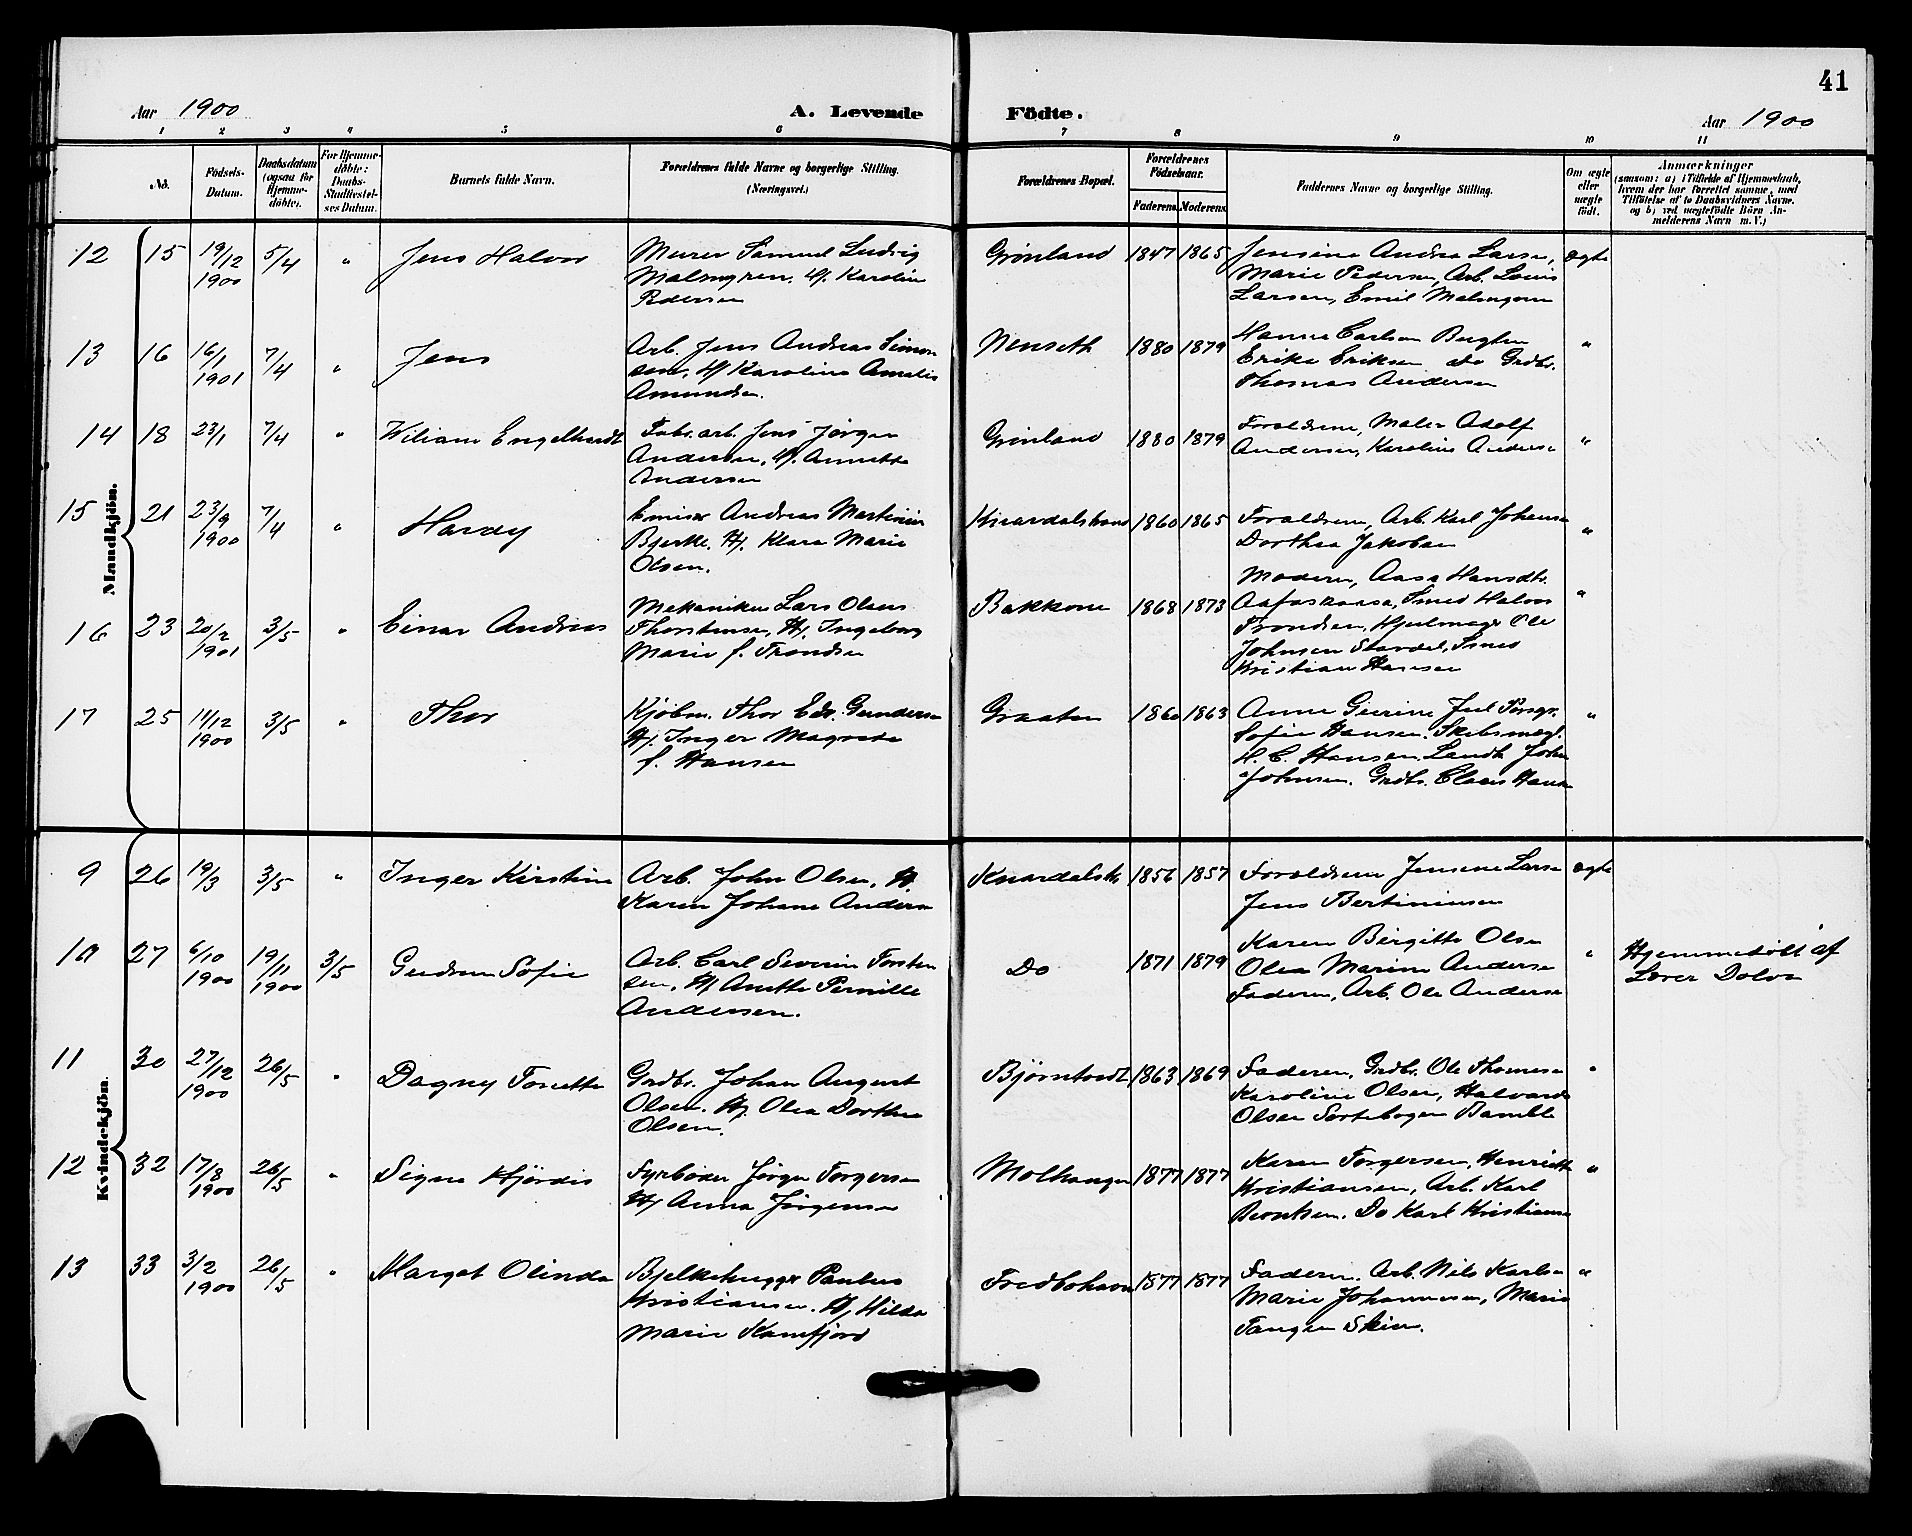 41
Aar 1900 A. Levende Födte. Aar 1900
1 2 3 4 5 6 7 8 9 10 11
No.
Födsels-Datum.
Daabsdatum (ogsaa for Hjemme-döbte).
For Hjemme-döbte: Daabs-Stadfæstel-ses Datum.
Barnets fulde Navn.
Forældrenes fulde Navne og borgerlige Stilling. (Næringsvei.)
Forældrenes Bopæl.
Forældrenes Födselsaar.
Faderens. Moderens.
Faddernes Navne og borgerlige Stilling.
Om ægte eller uægte födt.
Anmærkninger
(saasom: a) i Tilfælde af Hjemmedaab, hvem der har forrettet samme, med Tilföielse af to Daabsvidners Navne, og b) ved uægtefödte Börn An-melderens Navn m. V.)
Mandkjön.
12 15 19/12 1900 5/4 " Jens Halvor
Murer Samuel Ludvig
Malmgren. H/. Karoline
Pedersen
Grønland 1847 1865
Jensine Andrea Larse,
Marie Pedersen, Arb. Louis
Larsen, Emil Malmgren
Ægte
13 16 16/1 1901 7/4 " Jens
Arb. Jens Andreas Simon
sen, H/ Karoline Amalie
Amundsen.
Nenseth 1880 1879
Hanna Carlsen
Erika Eriksen Do Grdbr.
Thomas Andersen
"
14 18 23/1 7/4 " Wiliam Engelhardt
Fabr. arb. Jens Jørgen
Andersen, H/. Annette
Andersen
Grønland 1880 1879
Foraldrene, Maler Adolf
Andersen, Karoline Anderse
"
15 21 23/9 1900 7/4 " Hardy
Andreas Martinius
Bjerke. H/. Klara Marie
Olsen.
1860 1865
Foraldrene, Arb. Karl Johanse
Dorthea Jakobsen
"
16 23 20/2 1901 3/5 " Einar Andreas
Mekaniker Lars Olaus
Thorstensen, H/. Ingeborg
Marie f. Trondsen
Bakkene 1868 1873
Moderen, Aasa Hansdtr.
Smed Halvor
Trondsen, Hjulmager Ole
Johnsen Smed
Kristian Hansen
"
17 25 11/12 1900 3/5 " Thor
Kjøbm. Thor Edv. Gundersen
H/. Inger Magrete
f. Hansen
Graaten 1860 1863
Anne Gurine
Sofie Hansen. Skibsmægl.
H. C. Hansen, Landh. John
Johnsen. Grdbr. Claus Hanse
"
Kvindekjön.
9 26 19/3 3/5 " Inger Kirstine
Arb. John Olsen, H.
Karen Johane Anderse
Knardalsstr. 1856 1857
Foraldrene Jensine Larse
Jens Bertiniusen
Ægte
10 27 6/10 1900 19/11 1900 3/5 Gudrun Sofie
Arb. Carl Severin Torsten
sen, H/ Anette Pernille
Andersen.
Do 1871 1879
Karen Birgitte Olse
Olea Marine Anderse
Faderen, Arb. Ole Anderse
"
Hjemmedøbt af
Lærer Dolva
11 30 27/12 1900 26/5 " Dagny Torette
Grdbr. Johan August
Olsen. H/ Olea Dorthea
Olsen.
Bjørntvedt 1863 1869
Faderen, Grdbr. Ole Thomese
Karoline Olsen, Halvard
Olsen Bamble
"
12 32 17/8 1900 26/5 " Signe Hjørdis
Fyrbøder Jørgen Torgersen
H/ Anna Jørgensen
Molhaugen 1877 1877
Karen Torgersen, Henriette
Kristiansen, Arb. Karl
Berntsen. Do Karl Kristianse
"
13 33 3/2 1900 26/5 " Margot Olinda
Bjelkehugger Paulus
Kristiansen. H/ Hilda
Marie Kamfjord
1877 1877
Faderen. Arb. Nils Karlse
Marie Johannesen, Marie
Tangen Skien.
"